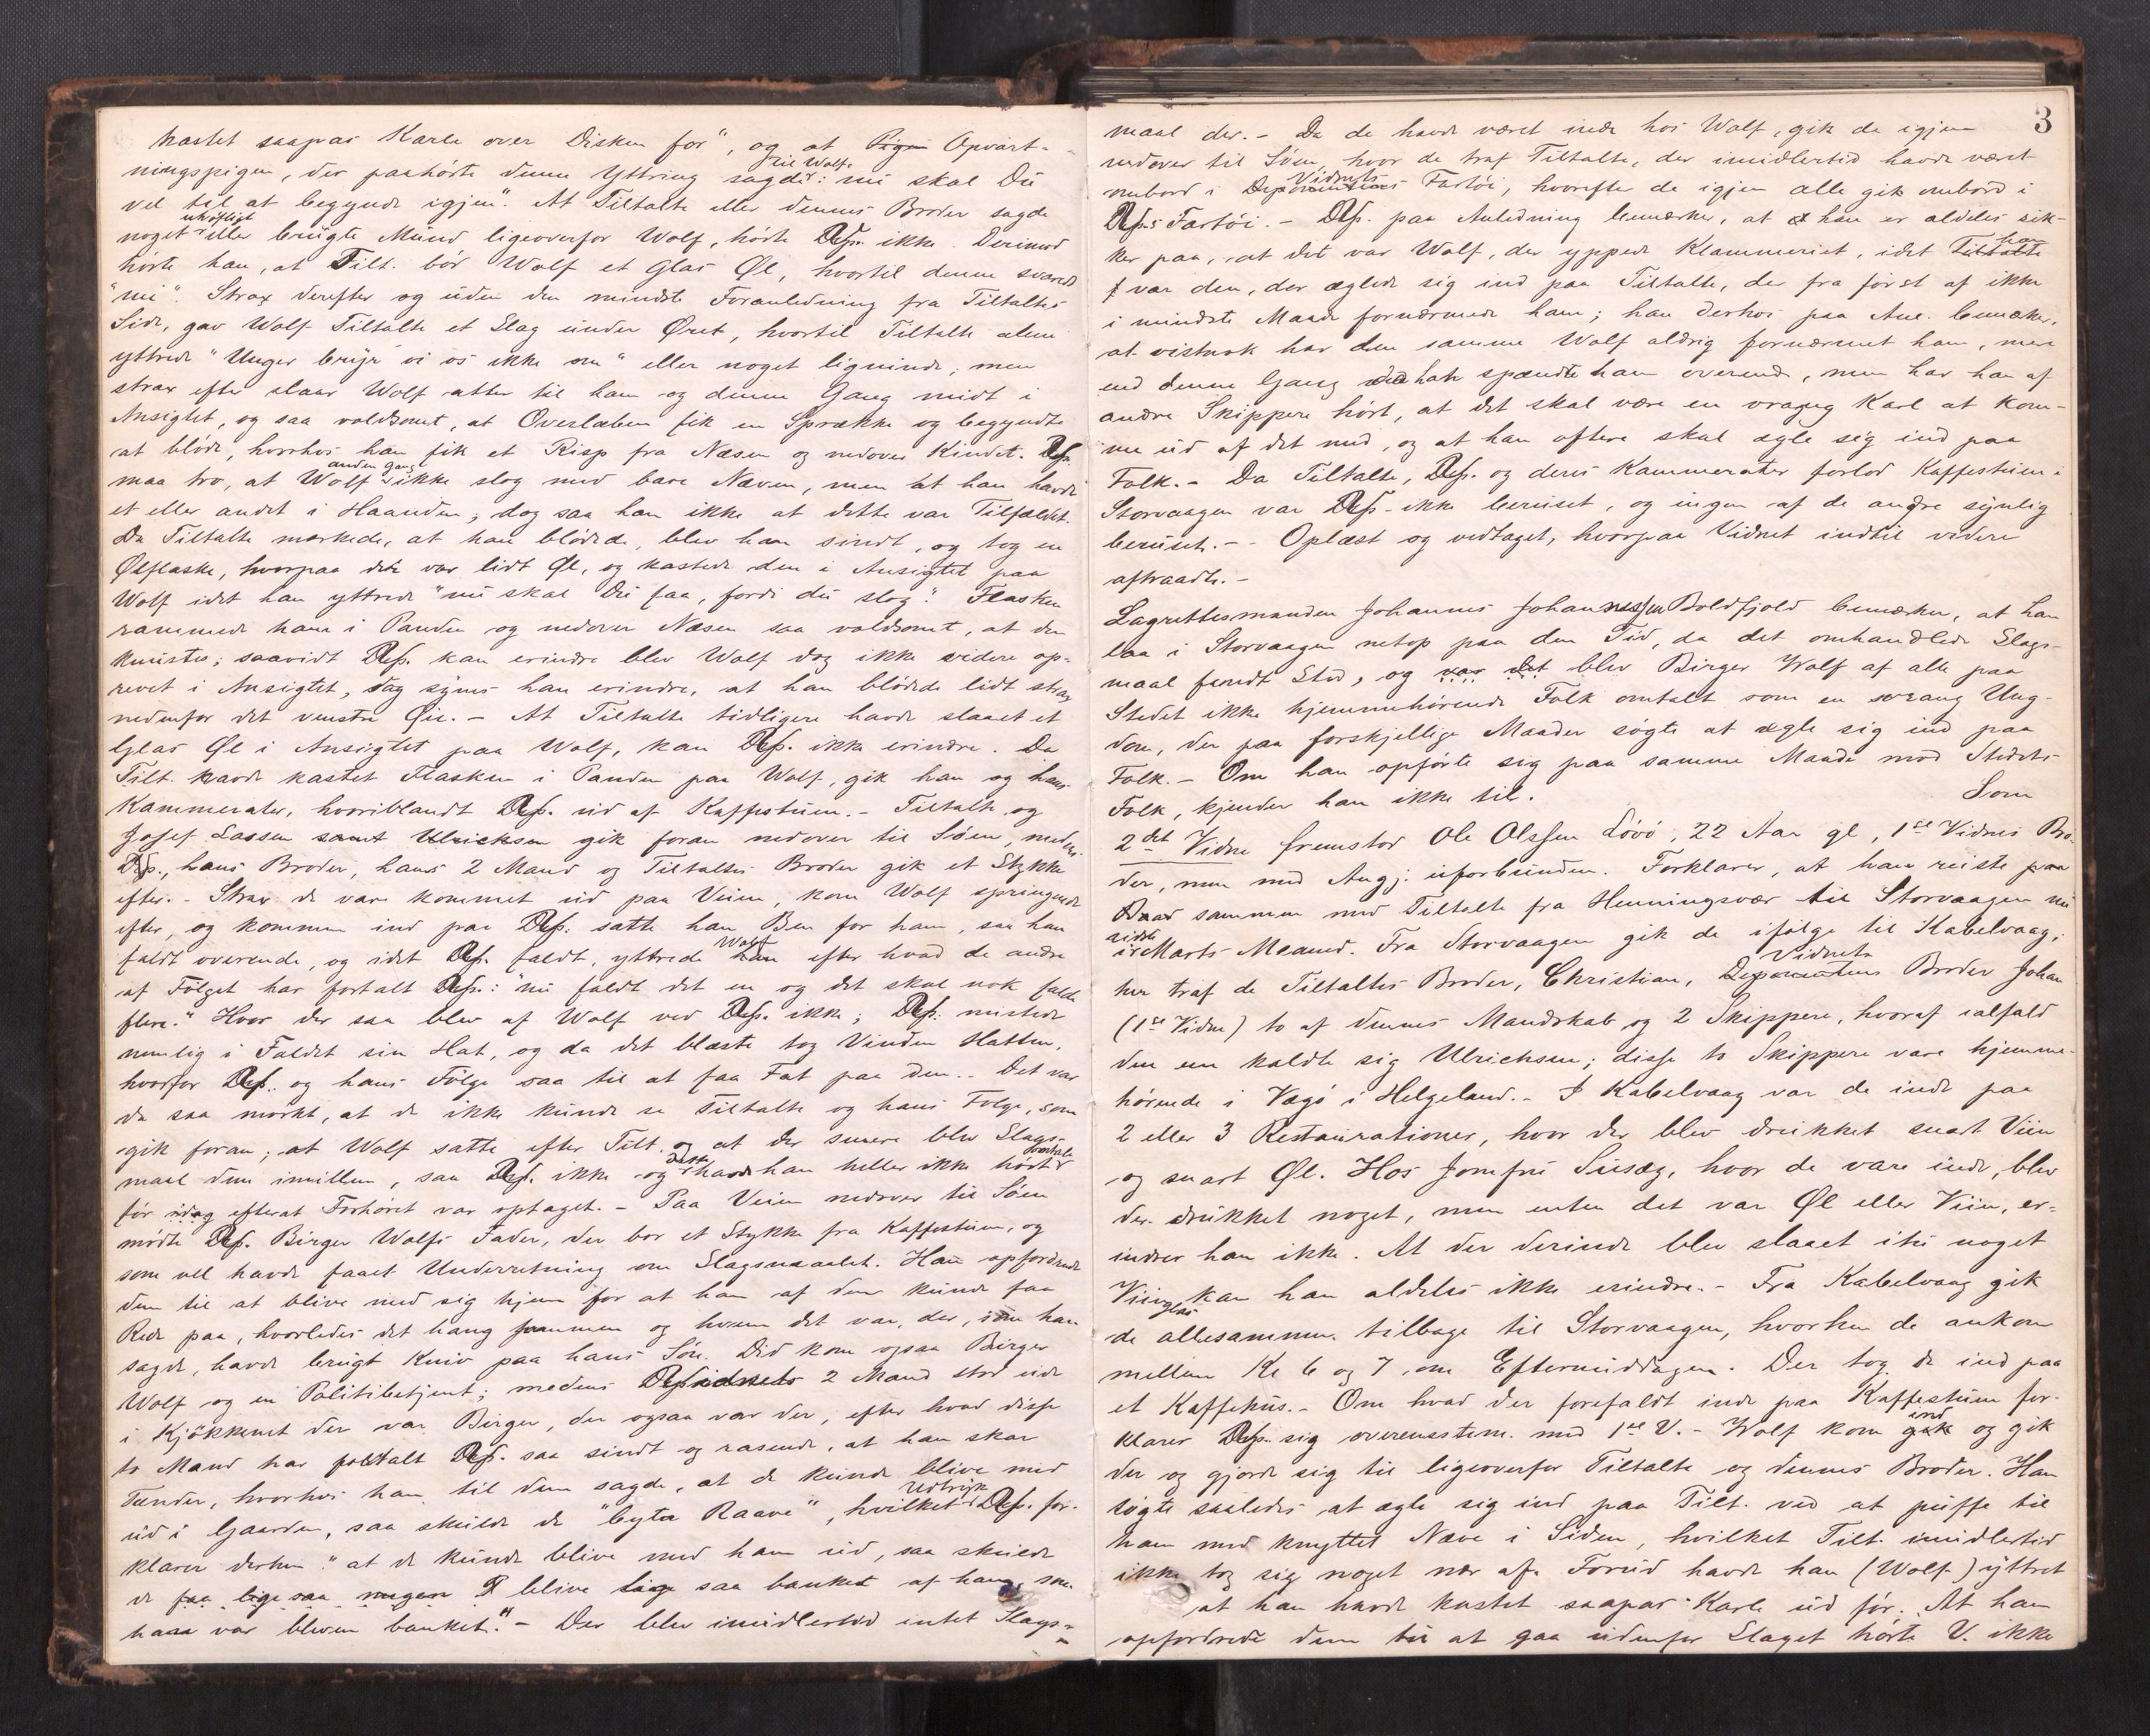 kastet saapas Karle over Disken før", og at Pigen Opvart-
ningspigen, der paahørte denne Yttring sagde til Wolf: "nu skal Du
vel til at begynde igjen". At Tiltalte eller dennes Broder sagde
noget uhøfligt eller brugte Mund ligeoverfor Wolf, hørte Dep. ikke. Derimod
hørte han, at Tilt. bød Wolf et Glas Øl, hvortil denne svarede
"nei". Strax derefter og uden den mindste Foranledning fra Tiltaltes
Side, gav Wolf Tiltalte et Slag under Øret, hvortil Tiltalte alene
yttrede "Unger bryr vi os ikke om" eller noget lignende, men
strax efter slaar Wolf atter til ham og denne Gang midt i
Ansigtet, og saa voldsomt, at Overlæben fik en Sprække og begyndte
at bløde, hvorhos han fik et Risp fra Næsen og nedover Kindet. Dep.
maa tro, at Wolf anden gang ikke slog med bare Næven, men at han havde
et eller andet i Haanden, dog saa han ikke at dette var Tilfældet.
Da Tiltalte mærkede, at han blødede, blev han sindt, og tog en
Ølflaske, hvorpaa der var lidt Øl, og kastede den i Ansigtet paa
Wolf idet han yttrede "nu skal Du faa, fordi du slog". Flasken
rammede ham i Panden og nedover Næsen saa voldsomt, at den
knustes; saavidt Dep. kan erindre blev Wolf dog ikke videre op-
revet i Ansigtet, dog synes han erindre, at han blødede lidt strax
nedenfor det venstre Øie. - At Tiltalte tidligere havde slaaet et
Glas Øl i Ansigtet paa Wolf, kan Dep. ikke erindre. Da
Tilt. havde kastet Flasken i Panden paa Wolf, gik han og hans
Kammerater, hvoriblandt Dep. ud af Kaffestuen. - Tiltalte og
Josef Lassen samt Ulricksen gik foran nedover til Søen, medens
Dep., hans Broder, hans 2 Mand og Tiltaltes Broder gik et Stykke
efter. - Strax de vare kommet ud paa Veien, kom Wolf springende
efter, og kommen ind paa Dep. satte han Ben for ham, saa han
faldt overende, og idet Dep. faldt, yttrede han Wolf efter hvad de andre
af Følget har fortalt Dep.: "nu faldt det en og det skal nok falde
flere." Hvor der saa blev af Wolf ved Dep. ikke; Dep. mistede
nemlig i Faldet sin Hat, og da det blæste tog Vinden Hatten,
hvorfor Dep. og hans Følge saa til at faa Fat paa den. - Det var
da saa mørkt, at de ikke kunde se Tiltalte og hans Følge, som
gik foran; at Wolf satte efter Tilt. og at der senere blev Slags-
maal dem imellem, saa Dep. ikke og dette havde han heller ikke hørt fortale
før idag efterat Forhøret var optaget. - Paa Veien nedover til Søen
mødte Dep. Birger Wolfs Fader, der bor et Stykke fra Kaffestuen, og
som vel havde faaet Underretning om Slagsmaalet. Han opfordrede
dem til at blive med sig hjem for at han af dem kunde faa
Rede paa, hvorledes det hang sammen og hvem det var, der, som han
sagde, havde brugt Kniv paa hans Søn. Did kom ogsaa Birger
Wolf og en Politibetjent; medens Dep. Vidnets 2 Mand stod ude
i Kjøkkenet der var Birger, der ogsaa var der, efter hvad disse
to Mand har fortalt Dep. saa sindt og rasende, at han skar
Tænder, hvorhos han til dem sagde, at de kunde blive med
ud i Gaarden, saa skulde de "byta Raave", hvilket Udtryk Dep. for-
klarer derhen "at de kunde blive med ham ud, saa skulde
de faa lige saa megen blive lige saa banket af ham, som
han var bleven banket." - Der blev imidlertid intet Slags-
3
maal der. - Da de havde været inde hos Wolf, gik de igjen
nedover til Søen, hvor de traf Tiltalte, der imidlertid havde været
ombord i Deponentens Vidnets Fartøi, hvorefter de igjen alle gik ombord i
Dep.s Fartøi. - Dep. paa Anledning bemærker, at han er aldeles sik-
ker paa, at det var Wolf, der yppede Klammeriet, idet Tiltalte han
var den, der æglede sig ind paa Tiltalte, der fra først af ikke
i mindste Maade fornærmede ham; han derhos paa Anl. bemærker,
at vistnok har den samme Wolf aldrig fornærmet ham, mere
end denne Gang da han spændte ham overende, men har han af
andre Skippere hört, at det skal være en vrangeg Karl at kom-
me ud af det med, og at han oftere skal ægle sig ind paa
Folk. - Da Tiltalte, Dep. og deres Kammerater forlod Kaffestuen i
Storvaagen var Dep. ikke beruset, og ingen af de andre synlig
beruset. - Oplæst og vedtaget, hvorpaa Vidnet indtil videre
aftraadte. -
Lagrettesmanden Johannes Johannessen Boldfjold bemærker, at han
laa i Storvaagen netop paa den Tid, da det omhandlede Slags-
maal fandt Sted, og var det blev Birger Wolf af alle paa
Stedet ikke hjemmehørende Folk omtalt som en vrang Ung-
dom, der paa forskjellige Maader søgte at ægle sig ind paa
Folk. - Om han opførte sig paa samme Maade mod Stedets
Folk, kjender han ikke til. Som
2det Vidne fremstod Ole Olssen Løvø, 22 Aar gl., 1ste Vidnes Bro-
der, men med Angj. uforbunden. Forklarer, at han reiste paa
Baad sammen med Tiltalte fra Henningsvær til Storvaagen nu
sidst i Marts Maaned. Fra Storvaagen gik de ifølge til Kabelvaag;
her traf de Tiltaltes Broder, Christian, Deponentens Vidnets Broder Johan
(1ste Vidne) to af dennes Mandskab og 2 Skippere, hvoraf ialfald
den ene kaldte sig Ulrichsen; disse to Skippere vare hjemme-
hørende i Vægø i Helgeland. - I Kabelvaag var de inde paa
2 eller 3 Restaurationer, hvor der blev drukket snart Viin
og snart Øl. Hos Jomfru Susæg, hvor de vare inde, blev
der drukket noget, men enten det var Øl eller Viin, er-
indrer han ikke. At der derinde blev slaaet itu noget
Viinglas kan han aldeles ikke erindre. - Fra Kabelvaag gik
de allesammen tilbage til Storvaagen, hvorhen de ankom
mellem Kl 6 og 7 om Eftermiddagen. Der tog de ind paa
et Kaffehus. - Om hvad der forefaldt inde paa Kaffestuen for-
klarer Dep. sig overensstem. med 1ste V. - Wolf kom gik ind og gik
der og gjorde sig til ligeoverfor Tiltalte og dennes Broder. Han
søgte saaledes at ægle sig ind paa Tilt. ved at puffe til
ham med knyttet Næve i Siden, hvilket Tilt. imidlertid
ikke tog sig noget nær af. Forud havde han (Wolf) yttret
at han havde kastet saapas Karle ud før. At han
opfordrede dem til at gaa udenfor Slaget hørte V. ikke